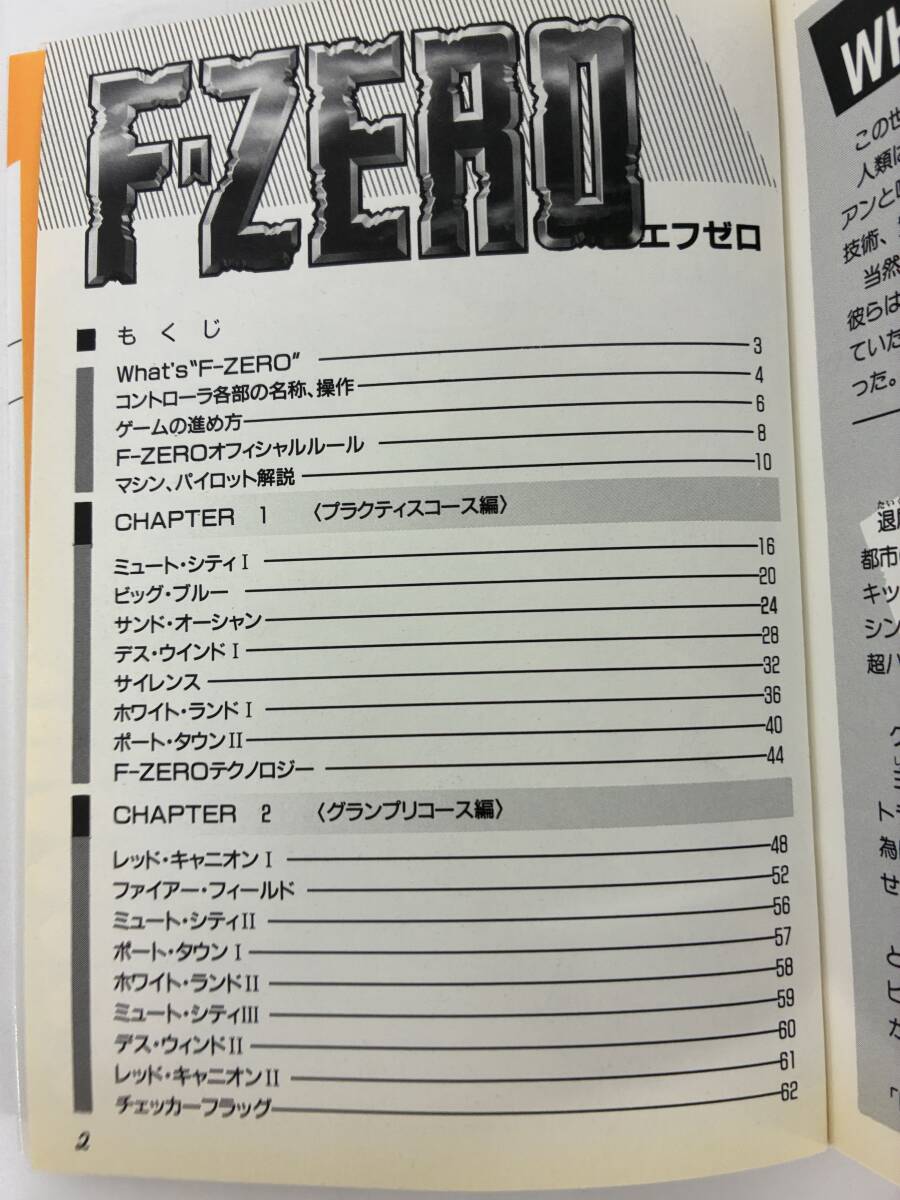 F-ZERO
エフゼロ
もくじ
What's"F-ZERO" 3
コントローラ各部の名称、操作 4
ゲームの進め方 6
F-ZEROオフィシャルルール 8
マシン、パイロット解説 10
CHAPTER 1 〈プラクティスコース編〉
ミュート・シティI 16
ビッグ・ブルー 20
サンド・オーシャン 24
デス・ウインドI 28
サイレンス 32
ホワイト・ランドI 36
ポート・タウンII 40
F-ZEROテクノロジー 44
CHAPTER 2 〈グランプリコース編〉
レッド・キャニオンI 48
ファイアー・フィールド 52
ミュート・シティII 56
ポート・タウンI 57
ホワイト・ランドII 58
ミュート・シティIII 59
デス・ウィンドII 60
レッド・キャニオンII 61
チェッカーフラッグ 62
2
この世
人類は
アンと
技術、
当然
彼らは
ていた
った。
都市
キッ
シン
超ハ